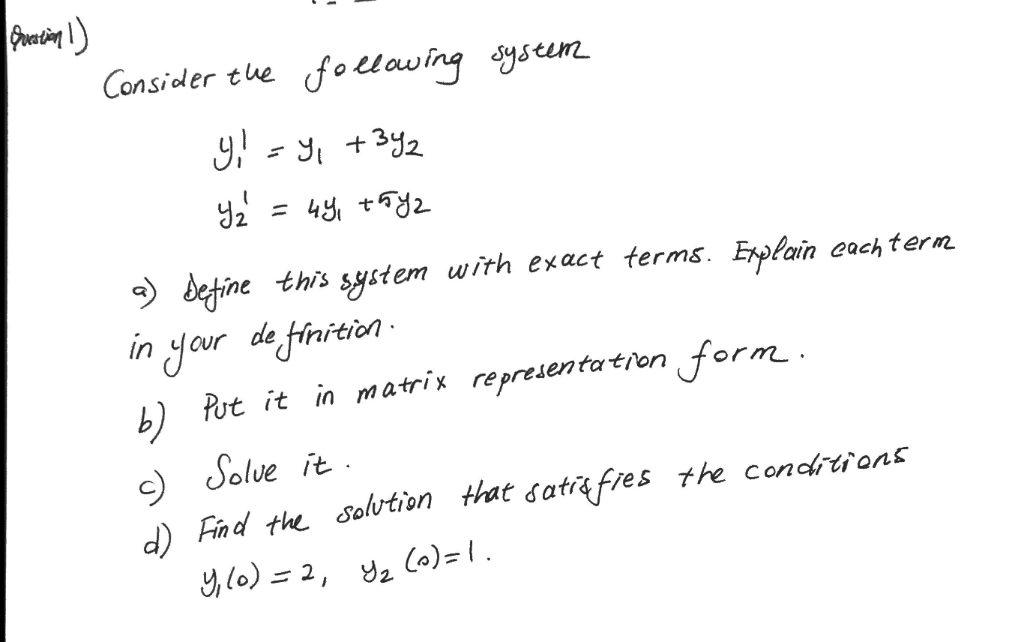 Question 1)
Consider the following system
y₁' = y₁ + 3y₂
y₂' = 4y₁ + 5y₂
a) Define this system with exact terms. Explain each term
in your definition.
b) Put it in matrix representation form.
c) Solve it.
d) Find the solution that satisfies the conditions
y₁(0) = 2, y₂(0) = 1.